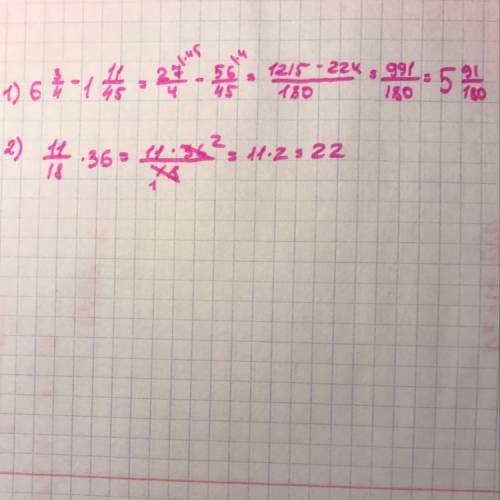 1) 6 3/4 - 1 11/45 = 27/4 \·45 - 56/45 \·4 = 1215 - 224/180 = 991/180 = 5 91/180
2) 11/18 · 36 = 11 · 36 2/18 1 = 11 · 2 = 22